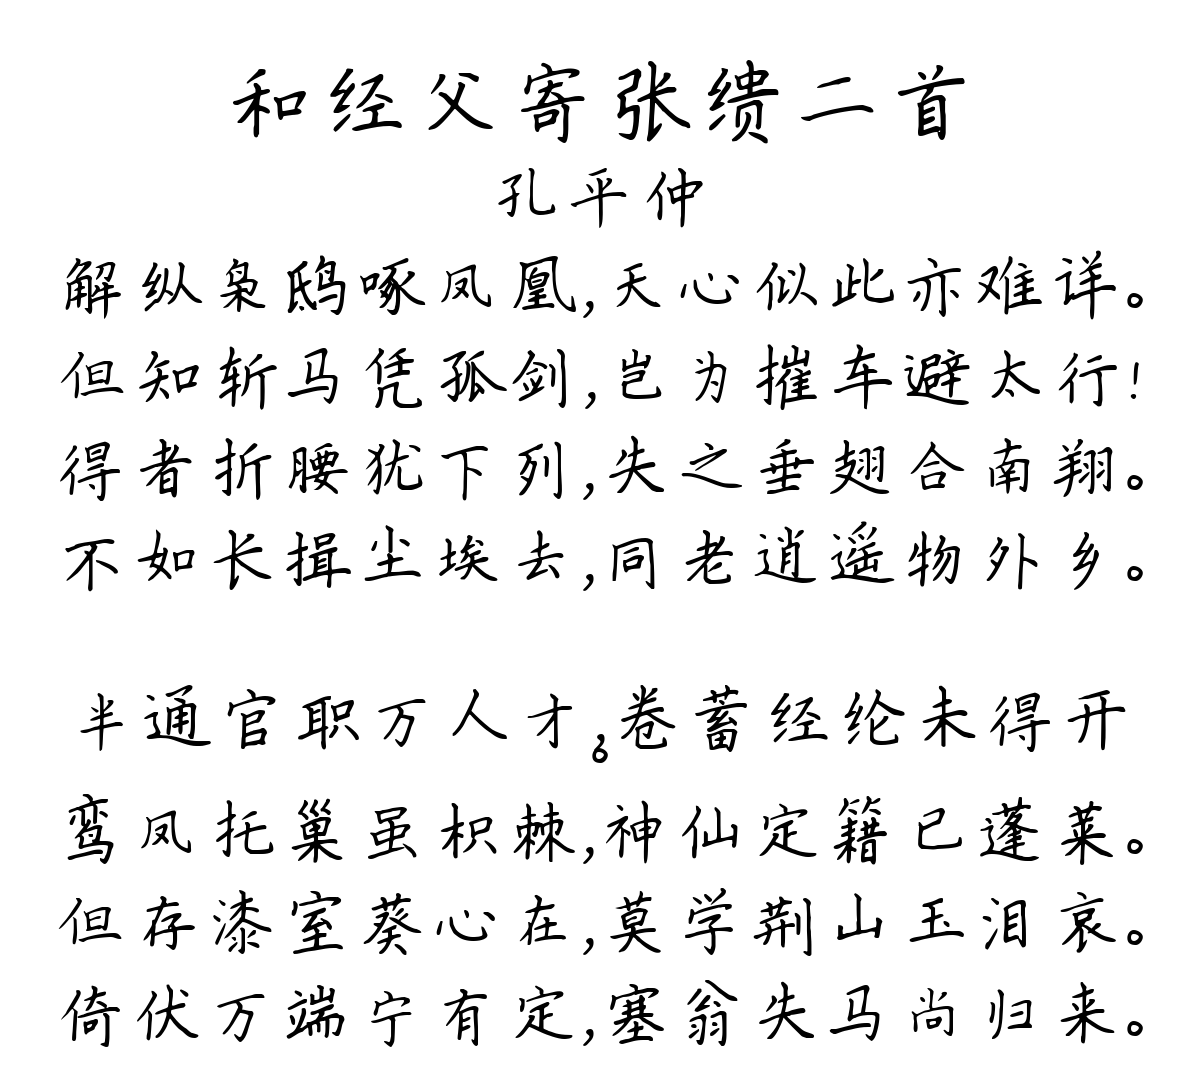 和经父寄张缋二首
孔平仲
解纵枭鸱啄凤凰,天心似此亦难详。
但知斩马凭孤剑,岂为摧车避太行!
得者折腰犹下列,失之垂翅合南翔。
不如长揖尘埃去,同老逍遥物外乡。
半通官职万人才,。卷蓄经纶未得开
鸾凤托巢虽枳棘,神仙定籍已蓬莱。
但存漆室葵心在,莫学荆山玉泪哀。
倚伏万端宁有定,塞翁失马尚归来。